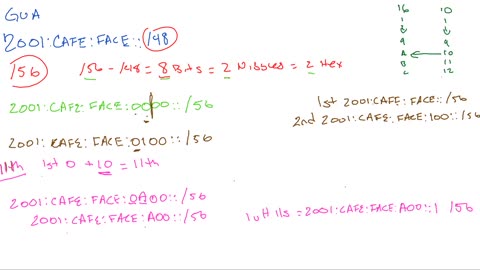 GUA
2001:CAFE:FACE::/48
/56
/56 - /48 = 8 Bits = 2 Nibbles = 2 Hex
2001:CAFE:FACE:0000::/56
2001:CAFE:FACE:0100::/56
11th 1st 0 + 10 = 11th
2001:CAFE:FACE:0A00::/56
2001:CAFE:FACE:A00::/56
16 10
1 1
9 9
A 10
B 11
C 12
1st 2001:CAFE:FACE::/56
2nd 2001:CAFE:FACE:100::/56
= 2001:CAFE:FACE:A00::1 /56